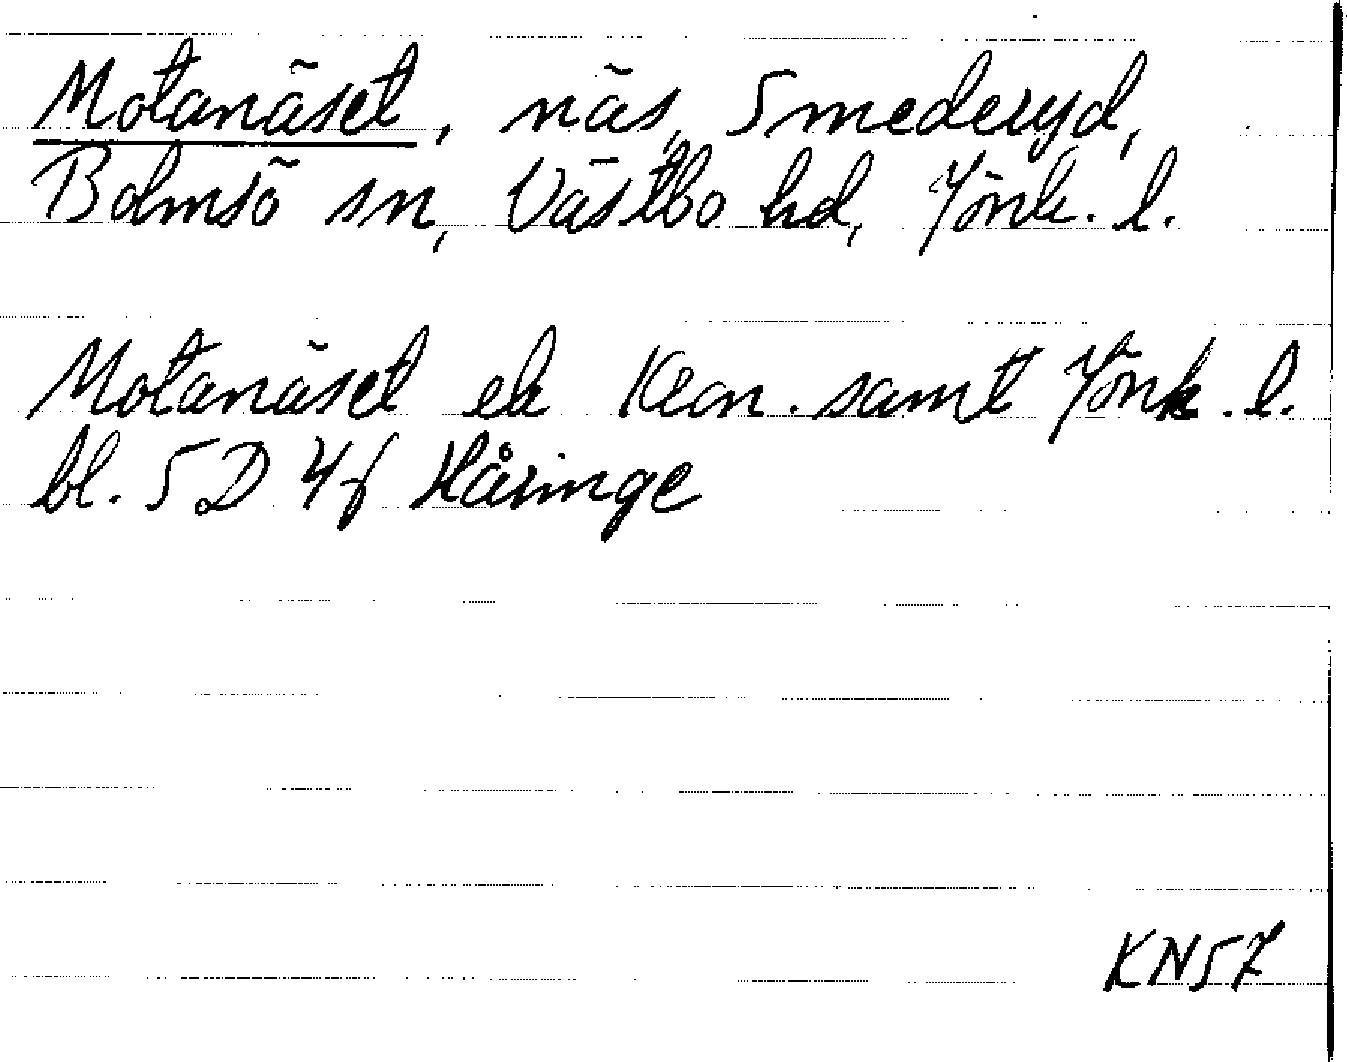 Motanäset, näs, Smederyd,
Bolmsö sn, Västbo hd, Jönk. l.
Motanäset ek Kron. samt Jönk. l.
bl. 5D 4f Håringe
KN57